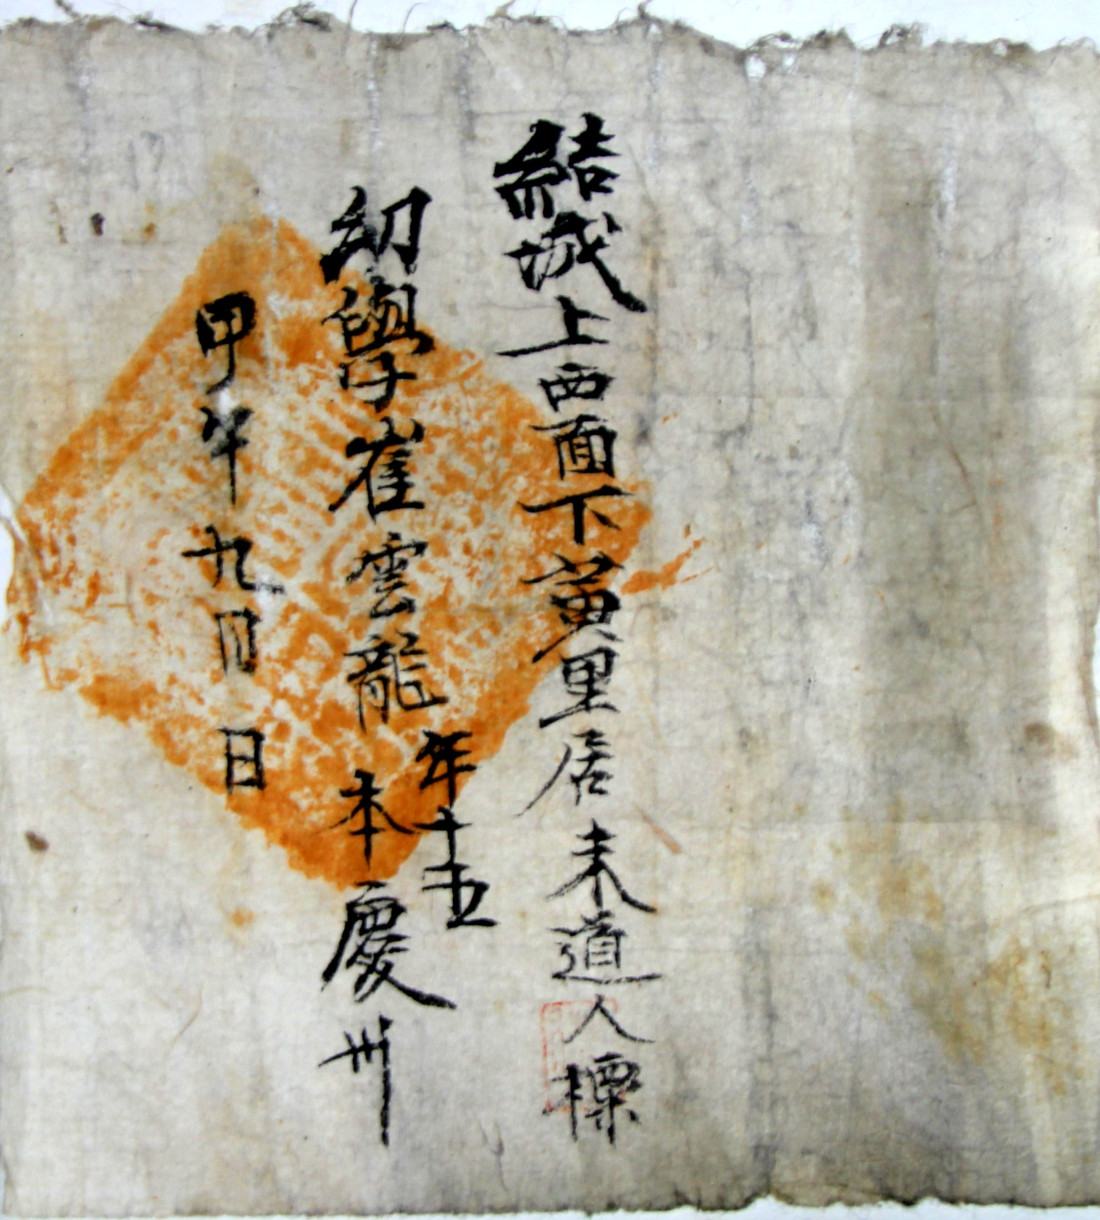 結城上西面下黃里居未道人標
幼學崔雲龍
年十五
本慶州
甲午九月 日